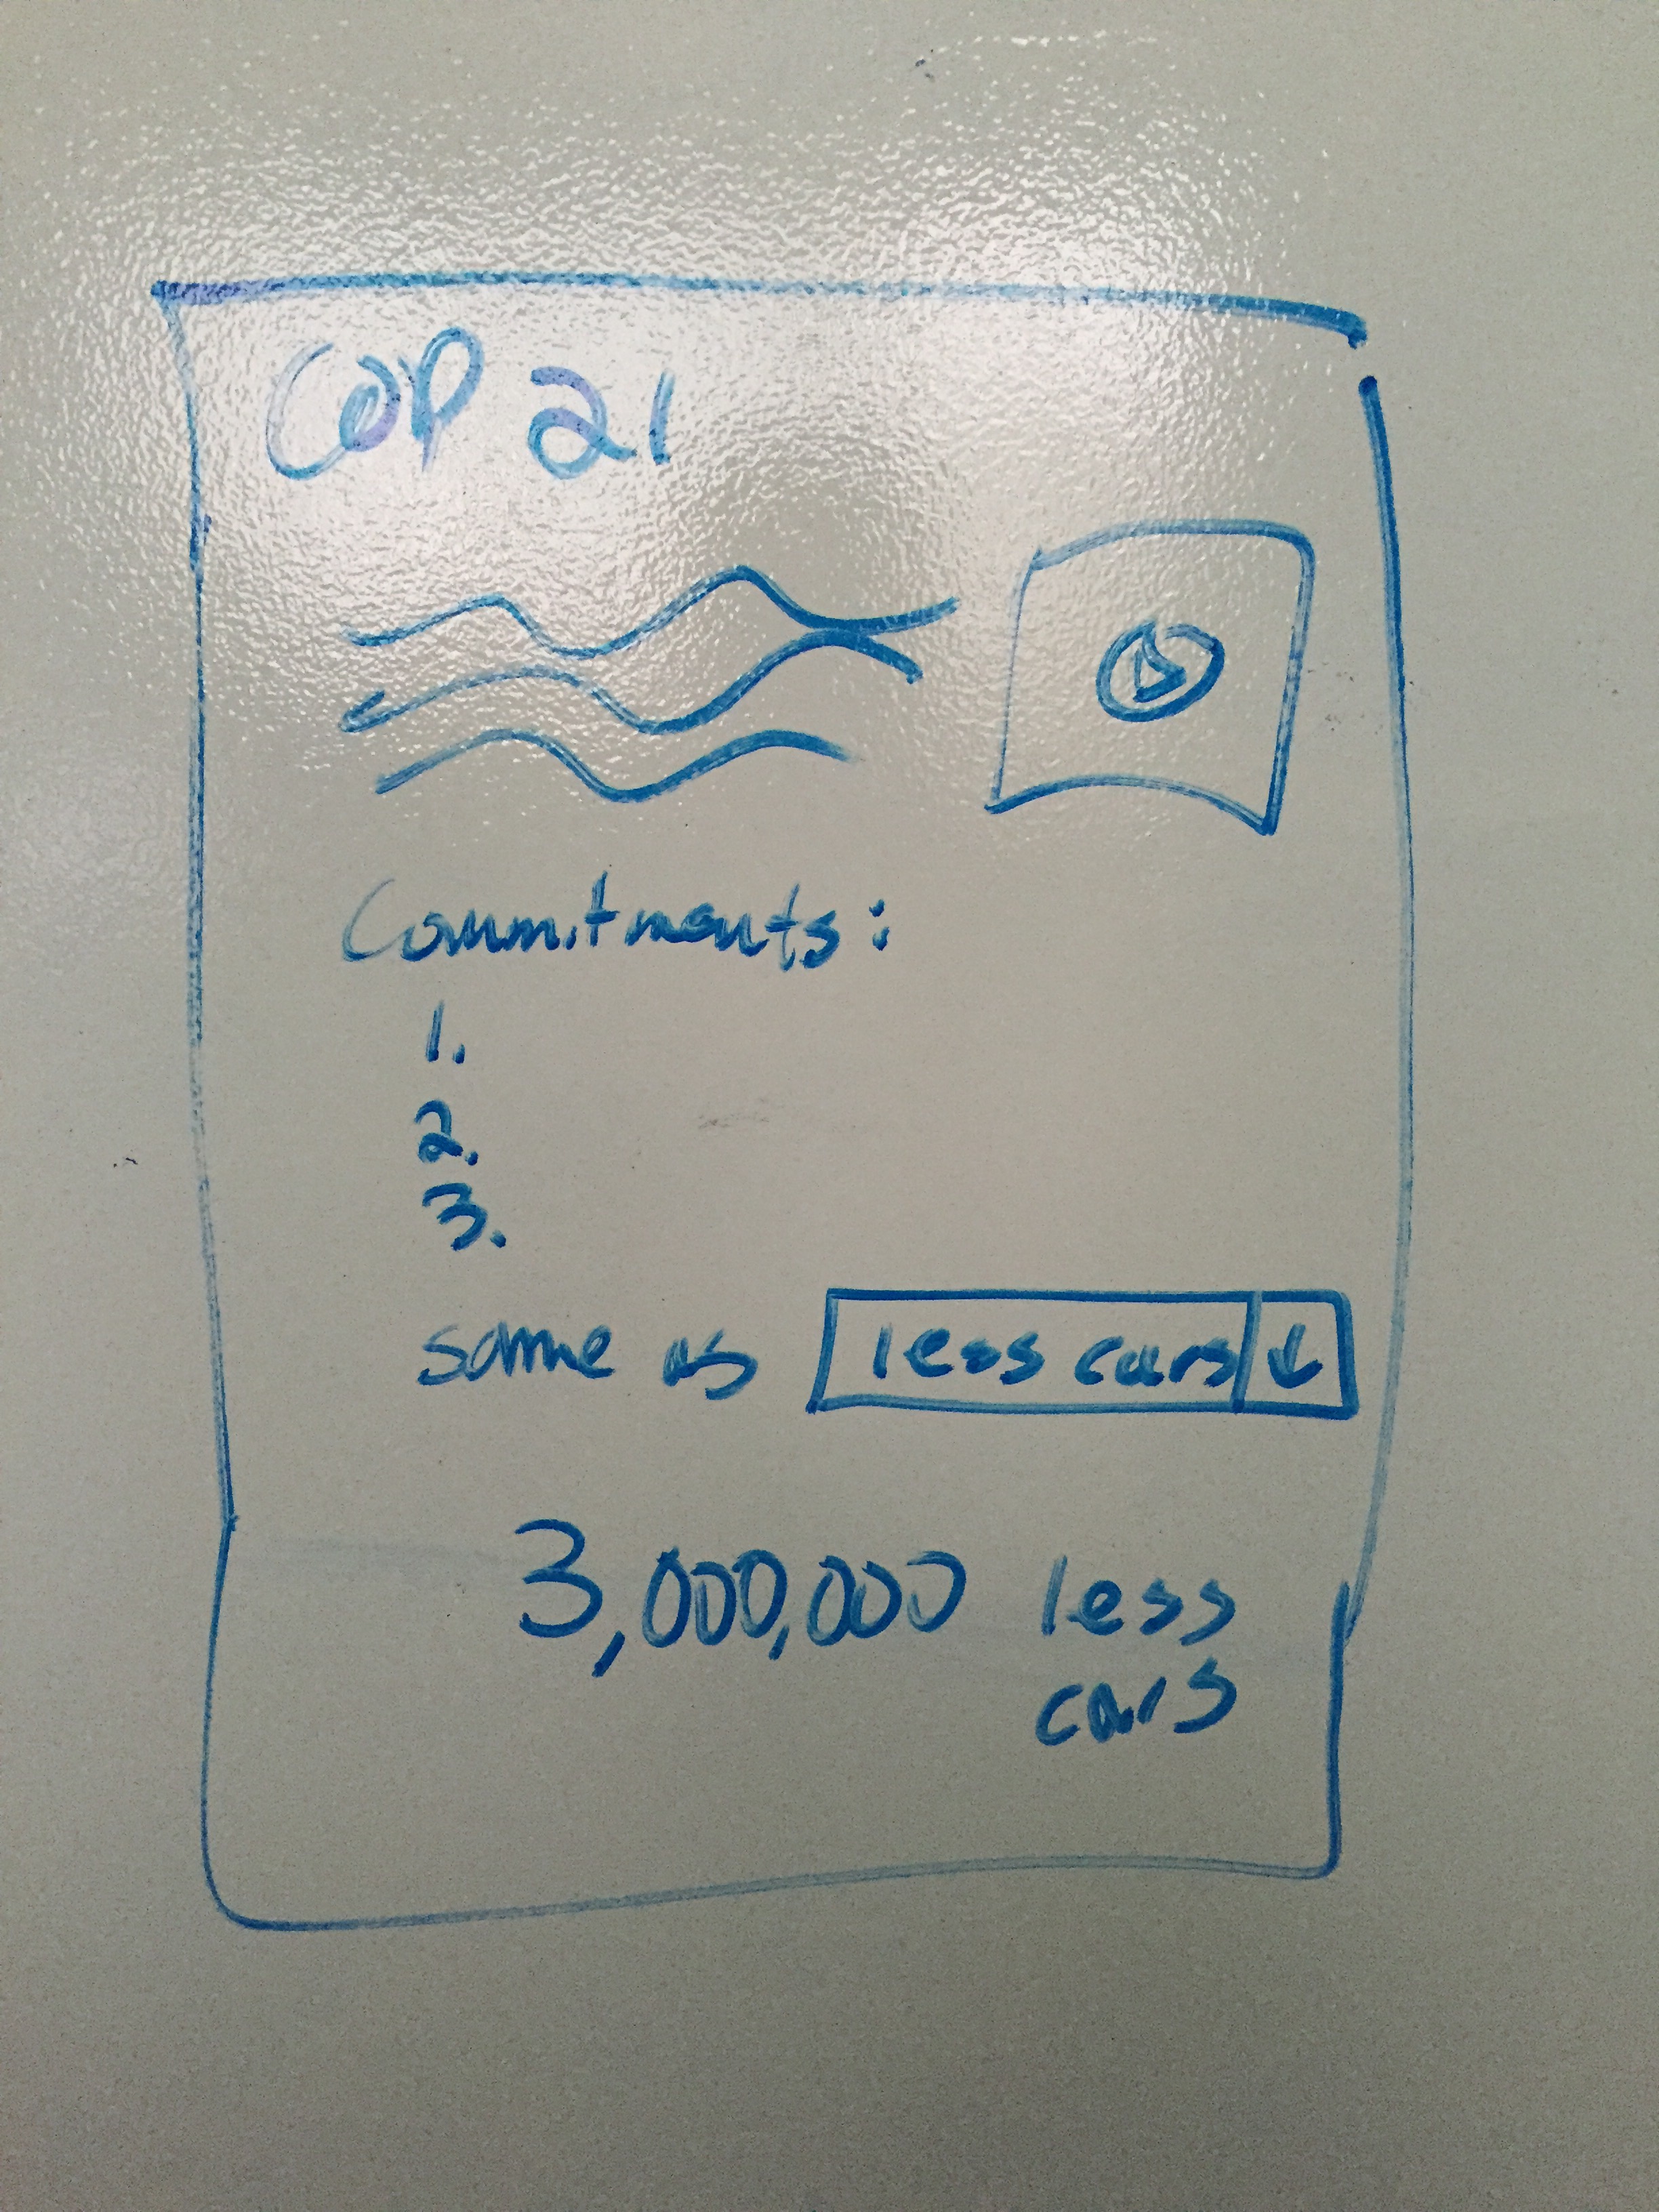 COP 21
Commitments:
1.
2.
3.
same as less cars
3,000,000 less
cars